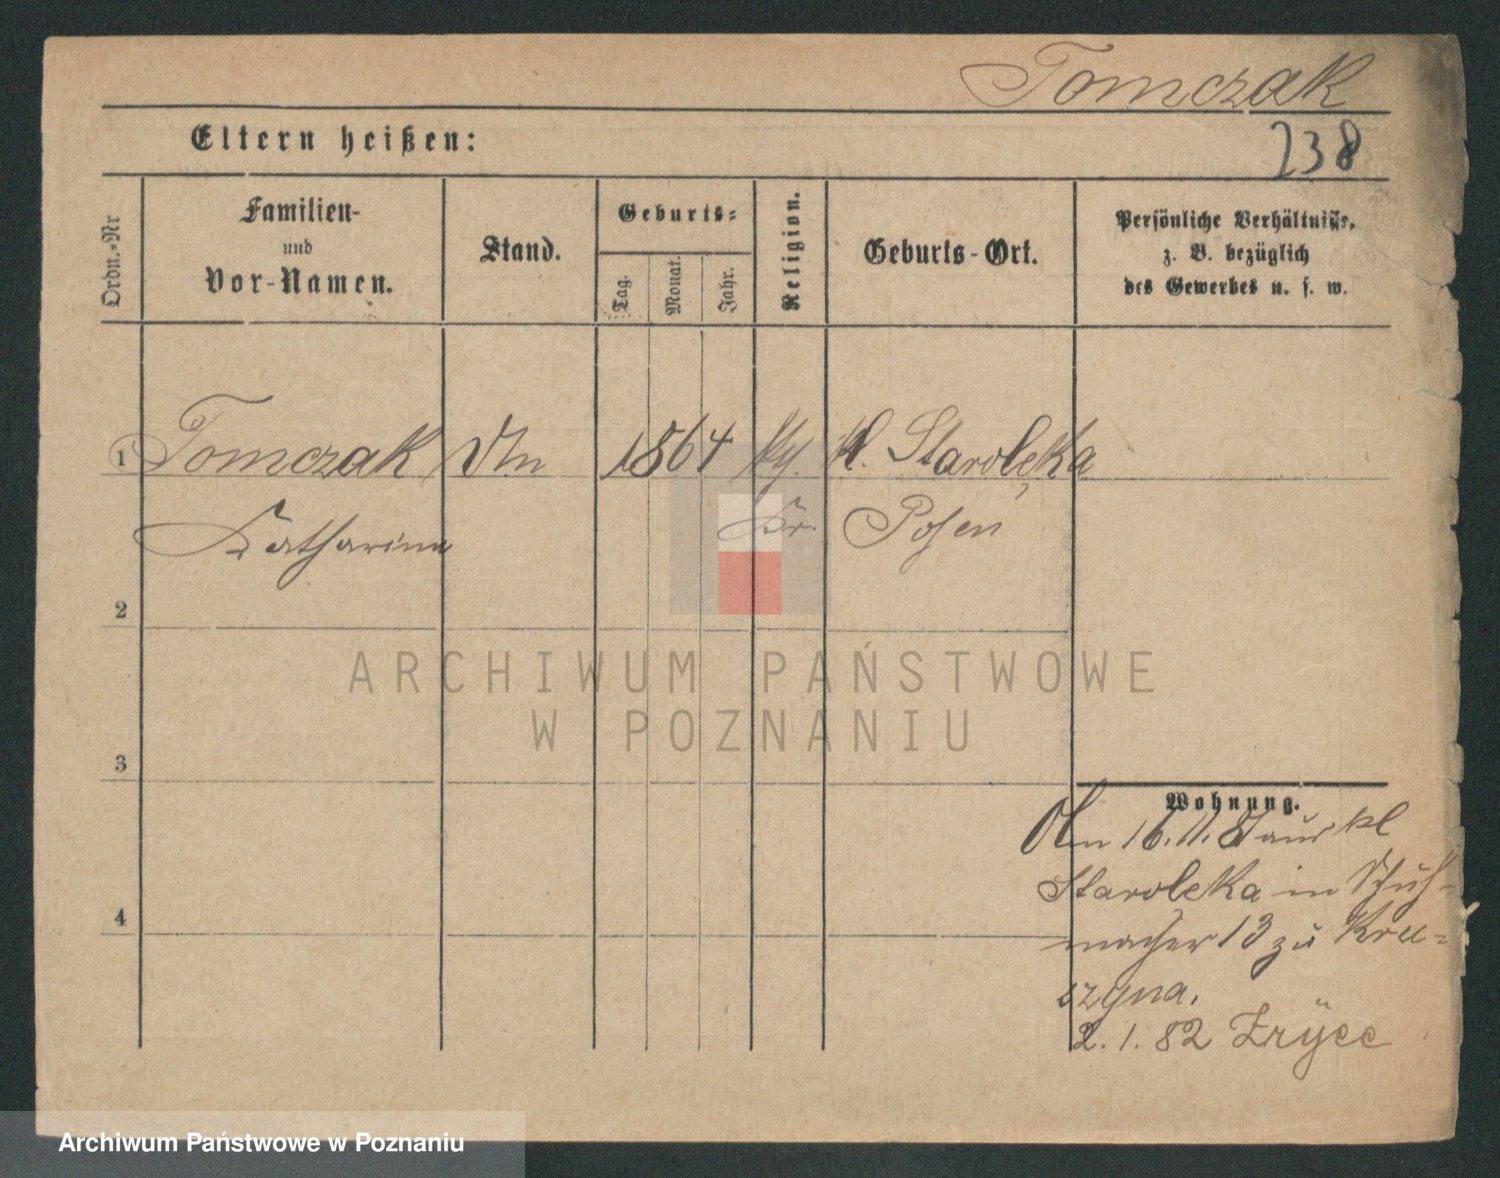 Tomczak
Eltern heißen:
238
Ordn.-Nr
Familien-
und
Vor-Namen.
Stand.
Geburts-
Tag.
Monat.
Jahr.
Religion.
Geburts-Ort.
Persönliche Verhältniße,
z. B. bezüglich
des Gewerbes u. s. w.
1 Tomczak 1864 Kl. Starolęka
Katharina Kr. Posen
2
ARCHIWUM PAŃSTWOWE
W POZNANIU
3
Wohnung.
16.11.81 aus Kl
Staroleka in Schuh-
macher 13 zu Kru-
szyna.
2.1.82
4
Archiwum Państwowe w Poznaniu